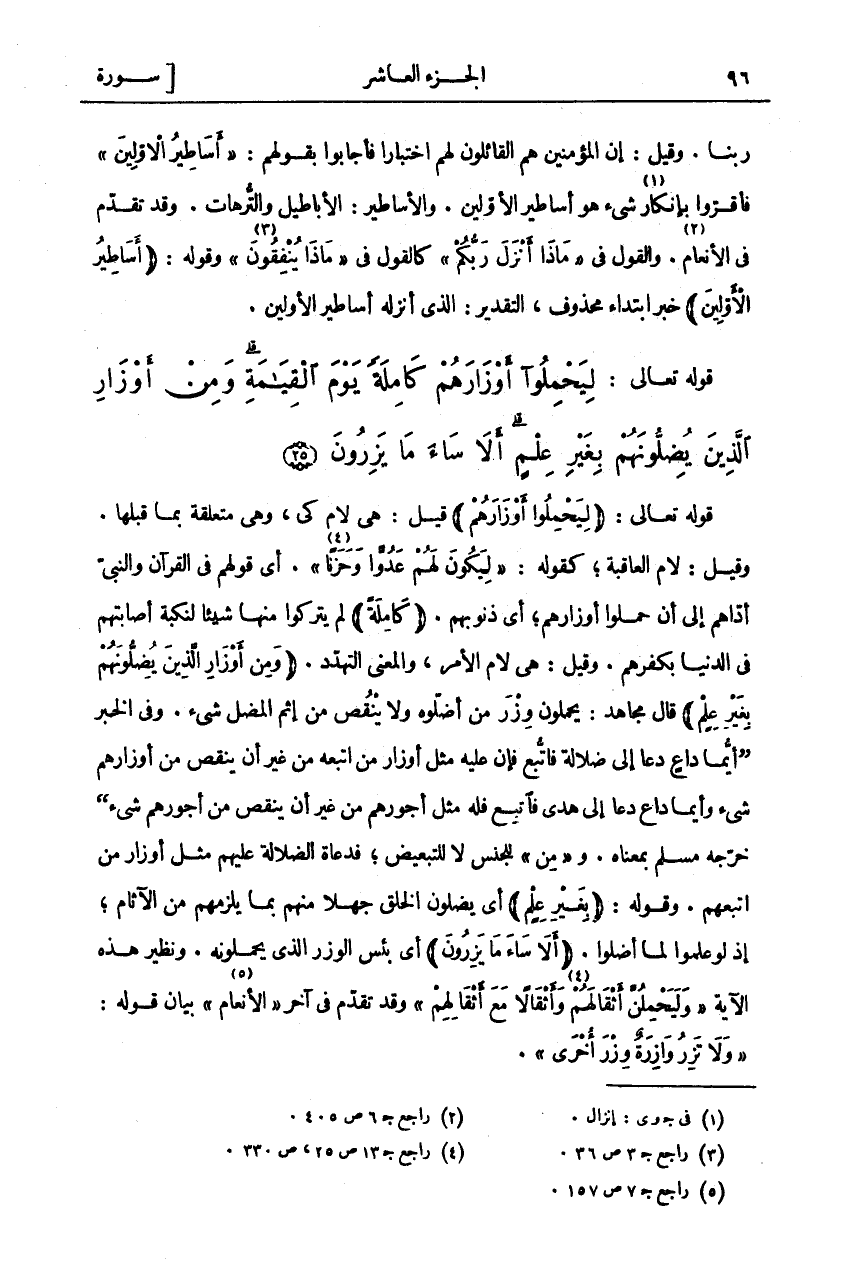 ٩٦ الجـزء العاشر [ سـورة
ربنا . وقيل : إن المؤمنين هم القائلون لهم اختبارا فأجابوا بقولهم : « أَسَاطِيرُ الْاوّلِينَ »
فأقـرّوا بإنكار(١) شىء هو أساطير الأوّلين . والأساطير : الأباطيل والتُّرهات . وقد تقـدّم
فى الأنعام(٢) . والقول فى « مَاذَا أَنْزَلَ رَبُّكُمْ » كالقول فى « مَاذَا يُنْفِقُونَ(٣) » وقوله : ﴿ أَسَاطِيرُ
الْأَوَّلِينَ ﴾ خبر ابتداء محذوف ، التقدير : الذى أنزله أساطير الأولين .
قوله تعـالى : لِيَحْمِلُوٓا أَوْزَارَهُمْ كَامِلَةً يَوْمَ ٱلْقِيَـٰمَةِ ۙ وَمِنْ أَوْزَارِ
ٱلَّذِينَ يُضِلُّونَهُمْ بِغَيْرِ عِلْمٍ ۗ أَلَا سَاءَ مَا يَزِرُونَ ﴿٢٥﴾
قوله تعـالى : ﴿ لِيَحْمِلُوا أَوْزَارَهُمْ ﴾ قيـل : هى لام كى ، وهى متعلقة بمـا قبلها .
وقيـل : لام العاقبة ؛ كقوله : « لِيَكُونَ لَهُمْ عَدُوًّا وَحَزَنًا(٤) » . أى قولهم فى القرآن والنبىّ
أدّاهم إلى أن حمـلوا أوزارهم ؛ أى ذنوبهم . ﴿ كَامِلَةً ﴾ لم يتركوا منهـا شيئا لنكبة أصابتهم
فى الدنيـا بكفرهم . وقيل : هى لام الأمر ، والمعنى التهدّد . ﴿ وَمِن أَوْزَارِ الَّذِينَ يُضِلُّونَهُمْ
بِغَيْرِ عِلْمٍ ﴾ قال مجاهد : يحملون وِزْرَ من أضلّوه ولا ينْقُص من إثم المضل شىء . وفى الخبر
”أيُّمـا داعٍ دعا إلى ضلالة فاتُّبع فإن عليه مثل أوزار من اتبعه من غير أن ينقص من أوزارهم
شىء وأيمـا داع دعا إلى هدى فٱتبـع فله مثل أجورهم من غير أن ينقص من أجورهم شىء“
خرّجه مسـلم بمعناه . و « مِن » للجنس لا للتبعيض ؛ فدعاة الضلالة عليهم مثـل أوزار من
اتبعهم . وقـوله : ﴿ بِغَيْرِ عِلْمٍ ﴾ أى يضلون الخلق جهـلا منهم بمـا يلزمهم من الآثام ؛
إذ لو علموا لمـا أضلوا . ﴿ أَلَا سَاءَ مَا يَزِرُونَ ﴾ أى بئس الوزر الذى يحمـلونه . ونظير هـذه
الآية « وَلَيَحْمِلُنَّ أَثْقَالَهُمْ وَأَثْقَالًا مَعَ أَثْقَالِهِمْ(٤) » وقد تقدّم فى آخر « الأنعام(٥) » بيان قـوله :
« وَلَا تَزِرُ وَازِرَةٌ وِزْرَ أُخْرَى » .
(١) فى جوى : إنزال . (٢) راجع جـ ٦ ص ٤٠٥ .
(٣) راجع جـ ٣ ص ٣٦ . (٤) راجع جـ ١٣ ص ٢٥ ، ص ٣٣٠ .
(٥) راجع جـ ٧ ص ١٥٧ .